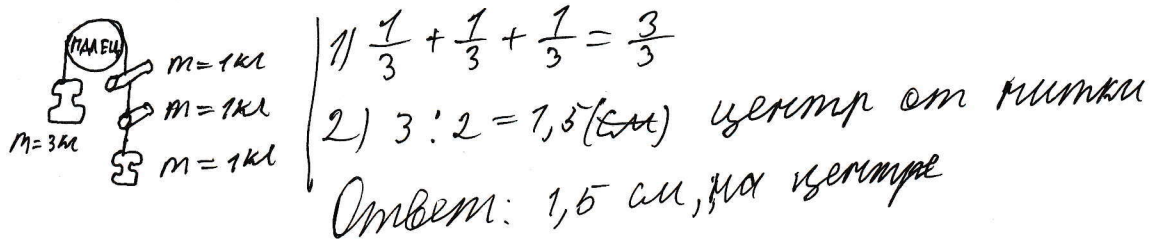 ПАЛЕЦ
m=1кг
m=1кг
m=3кг
m=1кг
1) 1/3 + 1/3 + 1/3 = 3/3
2) 3 : 2 = 1,5 (см) центр от нитки
Ответ: 1,5 см, на центре